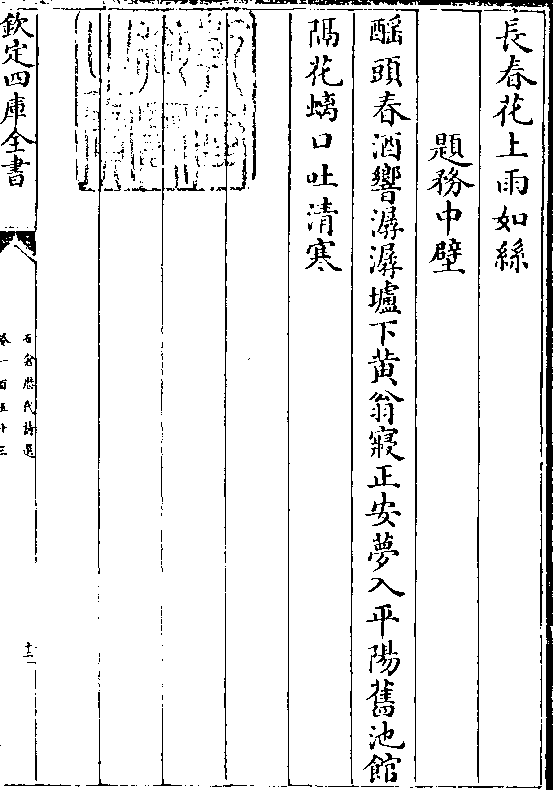 長春花上雨如絲
題務中壁
醅頭春酒響潺潺壚下黄翁寢正安夢入平陽舊池館
隔花螭口吐清寒
欽定四庫全書
石倉歴代詩選
卷一百五十三
十二